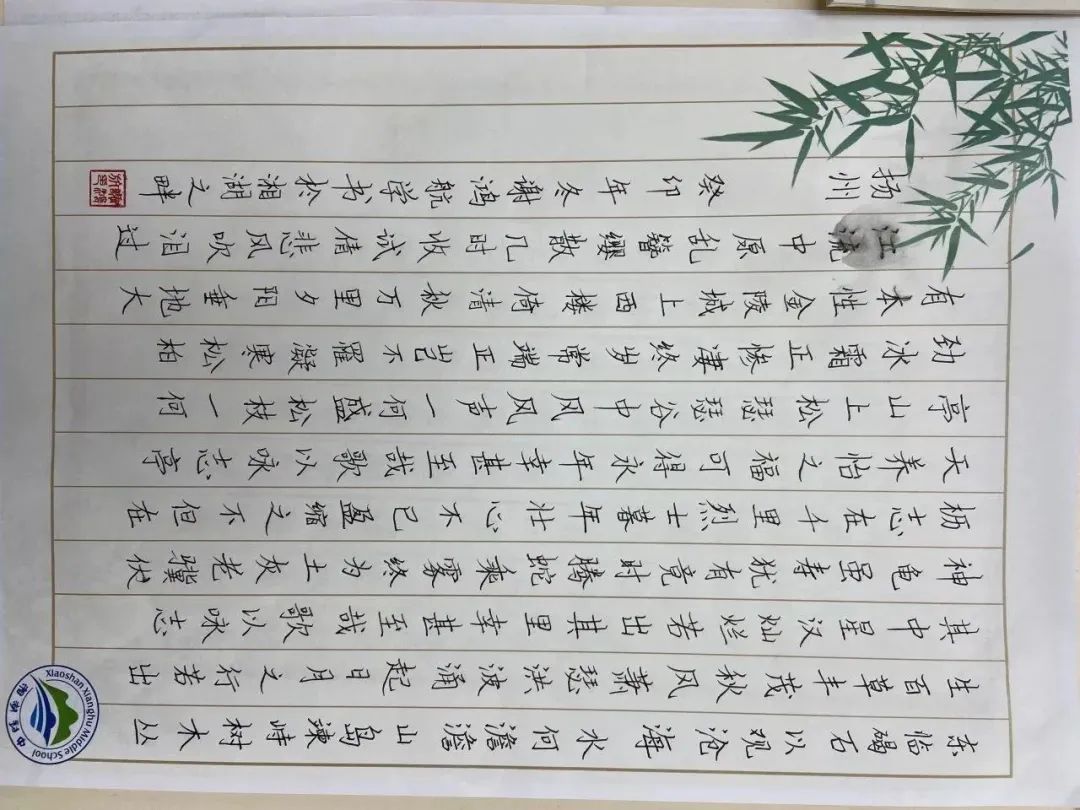 东临碣石以观沧海水何澹澹山岛竦峙树木丛
生百草丰茂秋风萧瑟洪波涌起日月之行若出
其中星汉灿烂若出其里幸甚至哉歌以咏志
神龟虽寿犹有竟时腾蛇乘雾终为土灰老骥伏
枥志在千里烈士暮年壮心不已盈缩之不但在
天养怡之福可得永年幸甚至哉歌以咏志亭
亭山上松瑟瑟谷中风风声一何盛松枝一何
劲冰霜正惨凄终岁常端正岂不罹凝寒松柏
有本性金陵城上西楼倚清秋万里夕阳垂地大
江流中原乱簪缨散几时收试倩悲风吹泪过
扬州 癸卯年冬谢鸿航学书於湘湖之畔
Xiaoshan Xianghu Middle School